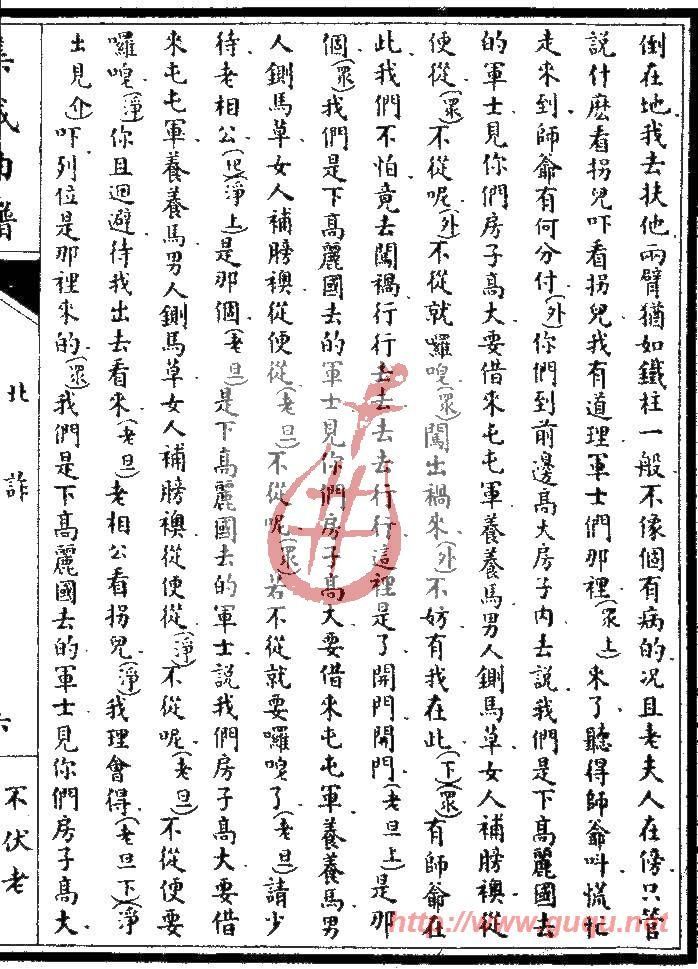 倒在地我去扶他兩臂猶如鐵柱一般不像個有病的况且老夫人在傍只管
說什麽看拐兒吓看拐兒我有道理軍士們那裡(衆上)來了聽得師爺呌慌忙
走來到師爺有何分付(外)你們到前邊髙大房子内去說我們是下髙麗國去
的軍士見你們房子髙大要借來屯屯軍養養馬男人鍘馬草女人補膀襖從
便從(衆)不從呢(外)不從就囉唣(衆)闖出禍來(外)不妨有我在此(下)(衆)有師爺在
此我們不怕竟去闖禍行行去去去去行行這裡是了開門開門(老旦上)是那
個(衆)我們是下髙麗國去的軍士見你們房子髙大要借來屯屯軍養養馬男
人鍘馬草女人補膀襖從便從(老旦)不從呢(衆)若不從就要囉唣了(老旦)請少
待老相公(旦)(淨上)是那個(老旦)是下髙麗國去的軍士說我們房子髙大要借
來屯屯軍養養馬男人鍘馬草女人補膀襖從便從(淨)不從呢(老旦)不從便要
囉唣(淨)你且迴避待我出去看來(老旦)老相公看拐兒(淨)我理會得(老旦下)(淨
出見介)吓列位是那裡來的(衆)我們是下髙麗國去的軍士見你們房子髙大
集成曲譜
北詐
六
不伏老
http://www.guqu.net